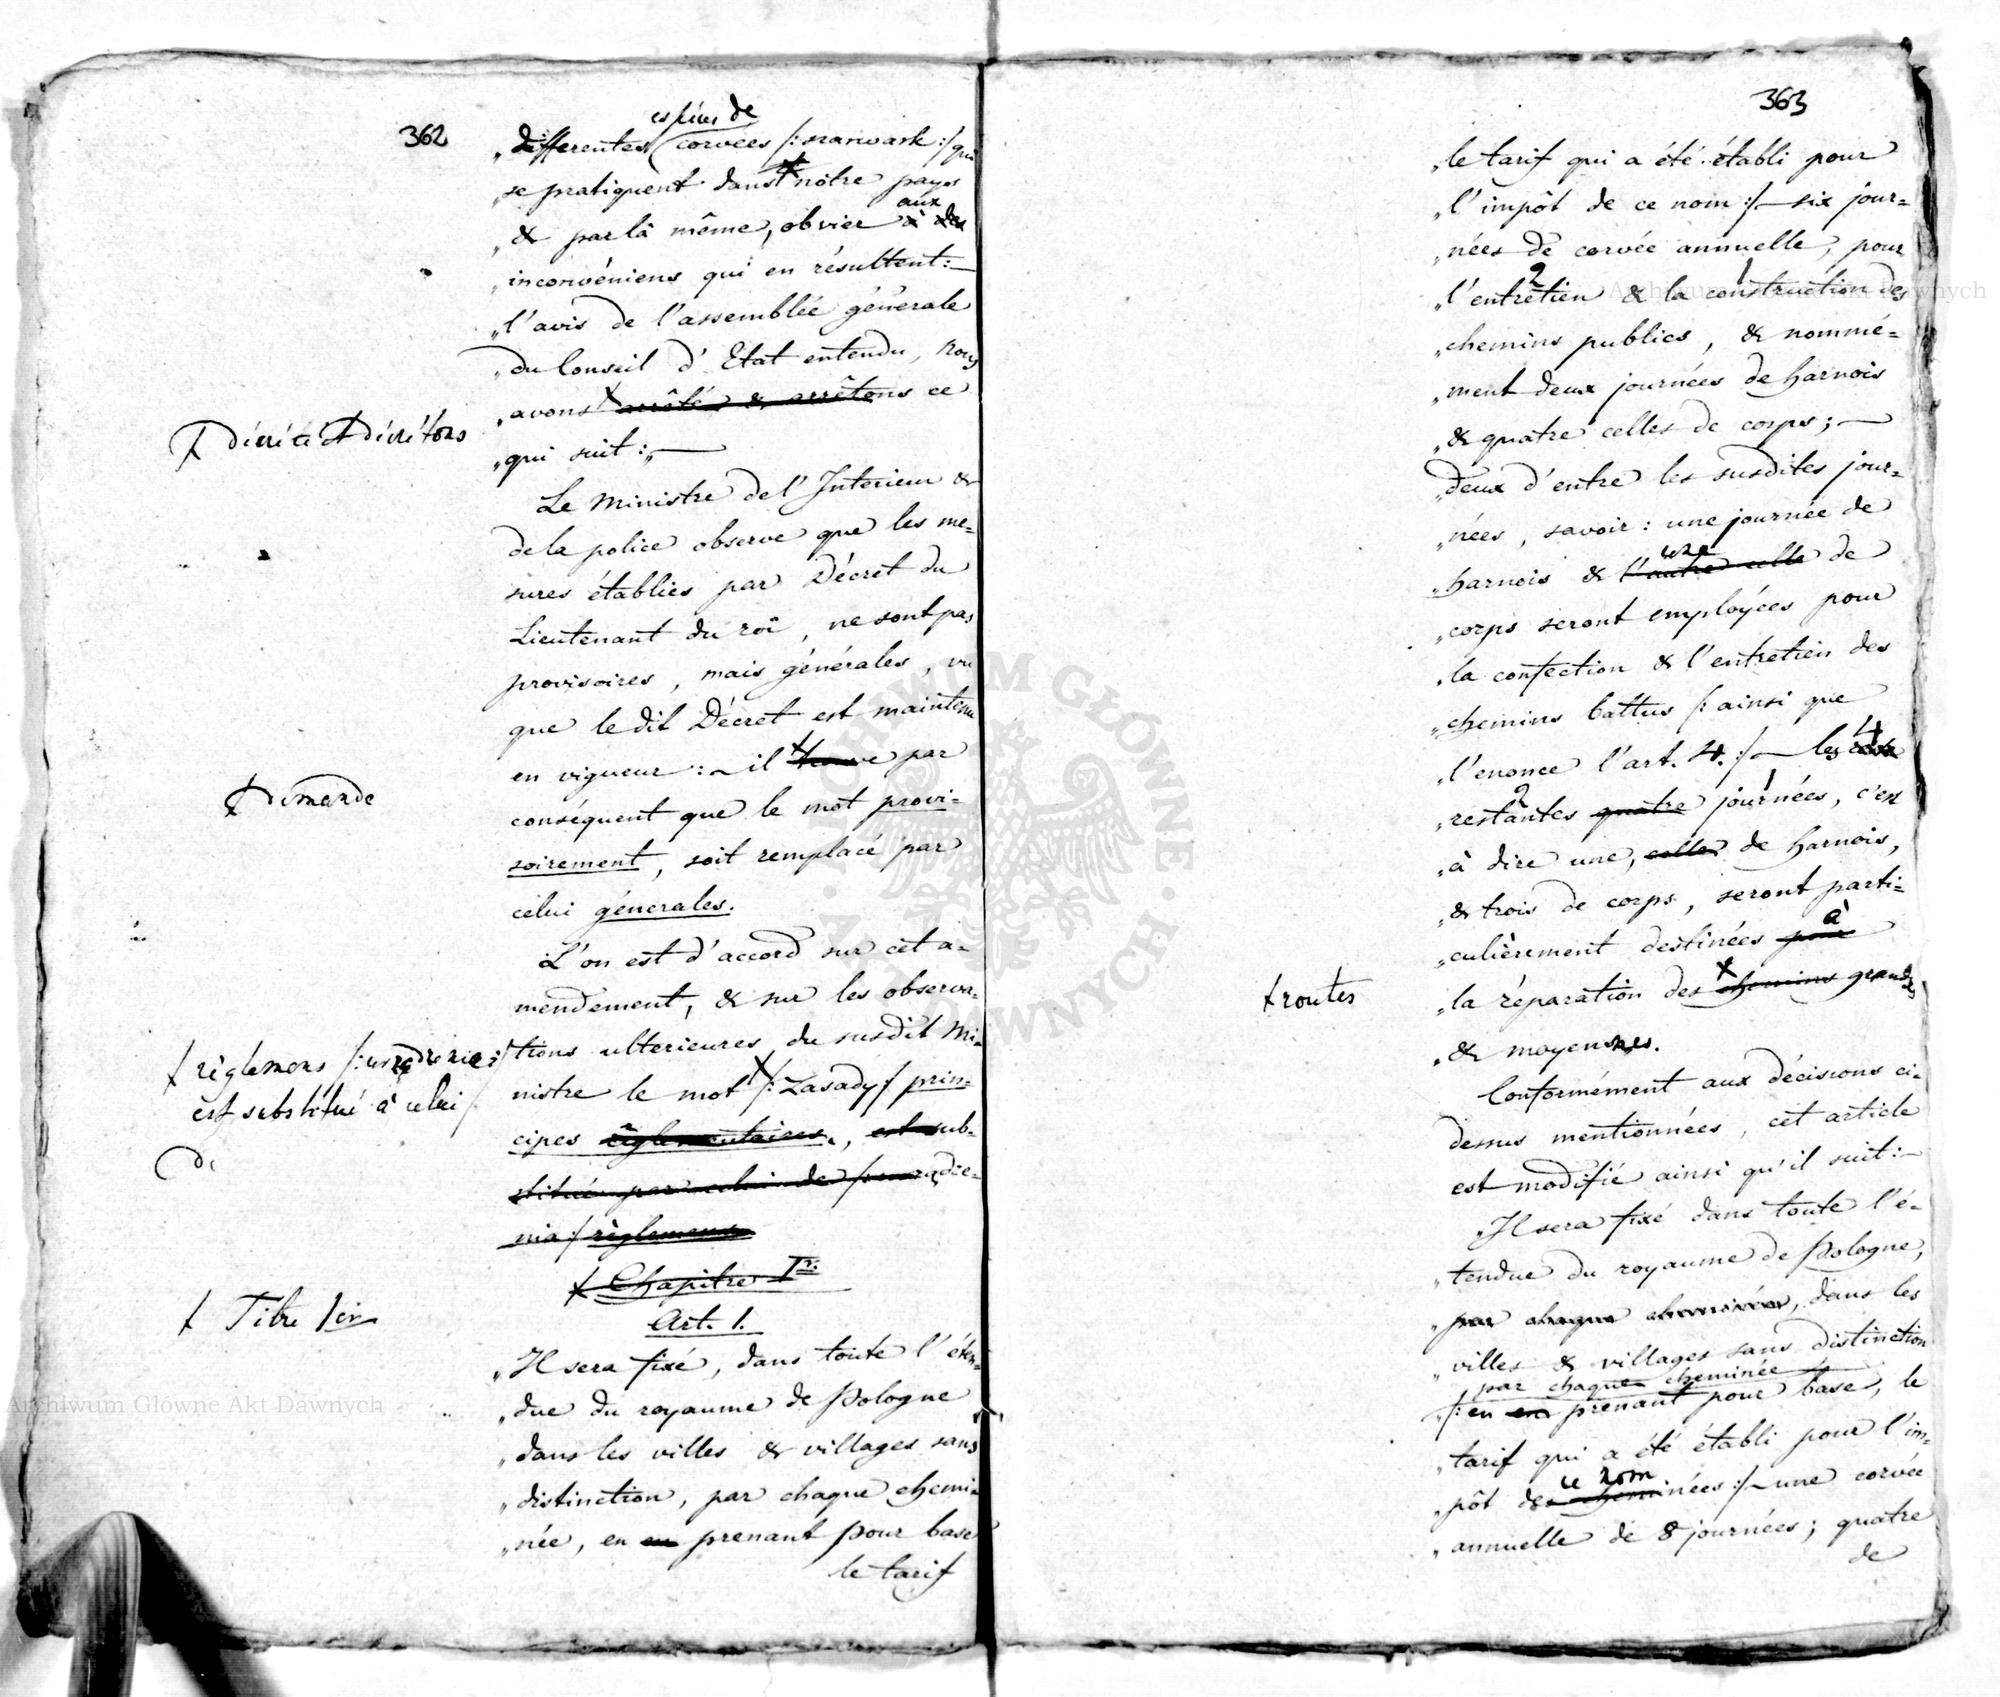 362
espèces de
„differentes corvées /: szarwark :/ qui
„se pratiquent dans nôtre pays
aux
„& par là même, obvier à des
„inconvéniens qui en résultent:—
„l'avis de l'assemblée génerale
„du Conseil d'Etat entendu, Nous
„avons arrêté & arrêtons ce
décrété et décrétons
„qui suit:„—
Le Ministre de l'Interieur &
de la police observe que les me=
sures établies par Décret du
Lieutenant du roi, ne sont pas
provisoires, mais générales, vu
que le dit Décret est maintenu
en vigueur:— il trouve par
Demande
conséquent que le mot provi=
soirement, soit remplacé par
celui génerales.
L'on est d'accord sur cet a=
mendement, & sur les observa=
tions ulterieures du susdit Mi=
règlemens /: urządzenia :/
est substitué à celui
de
nistre le mot /: Zasady :/ prin=
cipes règlementaires, est sub=
stitué par celui de /: urządze=
nia :/ règlemens
Chapitre Ir.
Titre Ier
Art. 1.
„Il sera fixé, dans toute l'éten=
„due du royaume de Pologne
„dans les villes & villages sans
„distinction, par chaque chemi=
„née, en en prenant pour base
le tarif
363
„le tarif qui a été établi pour
„l'impôt de ce nom :/— six jour=
„nées de corvée annuelle, pour
2 1
„l'entretien & la construction des
„chemins publics, & nommé=
„ment deux journées de harnois
„& quatre celles de corps;—
„deux d'entre les susdites jour=
„nées, savoir: une journée de
une
„harnois & l'autre celle de
„corps seront employées pour
„la confection & l'entretien des
„chemins battus /: ainsi que
4
„l'enonce l'art. 4. :/— les
2 1
„restantes quatre journées, c'est
„à dire une, celle de harnois,
„& trois de corps, seront parti=
à
„culièrement destinées pour
„la réparation des chemins grandes
routes
„& moyennes.
Conformément aux décisions ci=
dessus mentionnées, cet article
est modifié ainsi qu'il suit:—
„Il sera fixé dans toute l'é=
„tendue du royaume de Pologne,
„par chaque cheminée, dans les
„villes & villages sans distinction
par chaque cheminée
„/: en en prenant pour base, le
„tarif qui a été établi pour l'im=
ce nom
„pôt des cheminées :/— une corvée
„annuelle de 8 journées; quatre
de
Archiwum Główne Akt Dawnych
Archiwum Główne Akt Dawnych
ARCHIWUM GŁÓWNE AKT DAWNYCH